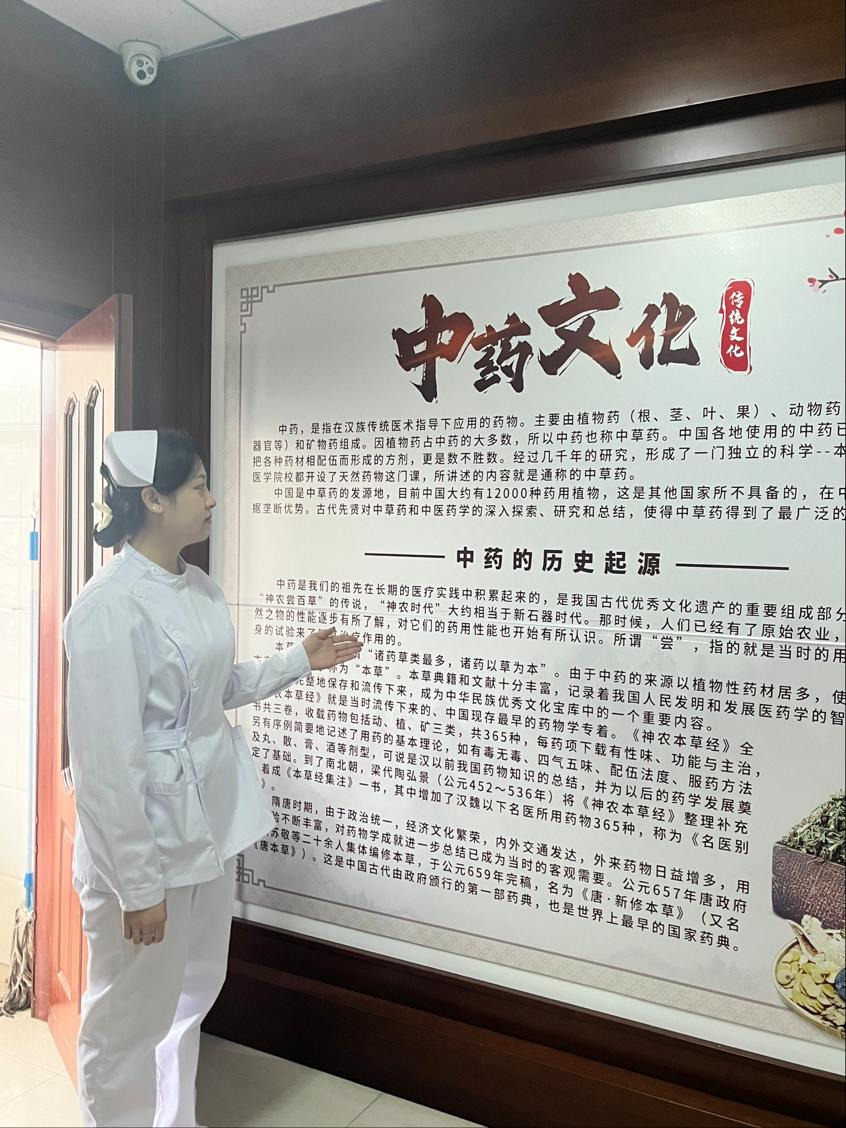 中药文化
传统文化
中药，是指在汉族传统医术指导下应用的药物。主要由植物药（根、茎、叶、果）、动物药
器官等）和矿物药组成。因植物药占中药的大多数，所以中药也称中草药。中国各地使用的中药已
把各种药材相配伍而形成的方剂，更是数不胜数。经过几千年的研究，形成了一门独立的科学--本
医学院校都开设了天然药物这门课，所讲述的内容就是通称的中草药。
中国是中草药的发源地，目前中国大约有12000种药用植物，这是其他国家所不具备的，在中
据垄断优势。古代先贤对中草药和中医药学的深入探索、研究和总结，使得中草药得到了最广泛的
中药的历史起源
中药是我们的祖先在长期的医疗实践中积累起来的，是我国古代优秀文化遗产的重要组成部分
“神农尝百草”的传说，“神农时代”大约相当于新石器时代。那时候，人们已经有了原始农业，
然之物的性能逐步有所了解，对它们的药用性能也开始有所认识。所谓“尝”，指的就是当时的用
身的试验来了 治疗作用的。
“诸药草类最多，诸药以草为本”。由于中药的来源以植物性药材居多，使
称为“本草”。本草典籍和文献十分丰富，记录着我国人民发明和发展医药学的智
完整地保存和流传下来，成为中华民族优秀文化宝库中的一个重要内容。
农本草经》就是当时流传下来的、中国现存最早的药物学专着。《神农本草经》全
书共三卷，收载药物包括动、植、矿三类，共365种，每药项下载有性味、功能与主治，
另有序例简要地记述了用药的基本理论，如有毒无毒、四气五味、配伍法度、服药方法
及丸、散、膏、酒等剂型，可说是汉以前我国药物知识的总结，并为以后的药学发展奠
定了基础。到了南北朝，梁代陶弘景（公元452～536年）将《神农本草经》整理补充
着成《本草经集注》一书，其中增加了汉魏以下名医所用药物365种，称为《名医别
》。
隋唐时期，由于政治统一，经济文化繁荣，内外交通发达，外来药物日益增多，用
验不断丰富，对药物学成就进一步总结已成为当时的客观需要。公元657年唐政府
苏敬等二十余人集体编修本草，于公元659年完稿，名为《唐·新修本草》（又名
《唐本草》）。这是中国古代由政府颁行的第一部药典，也是世界上最早的国家药典。